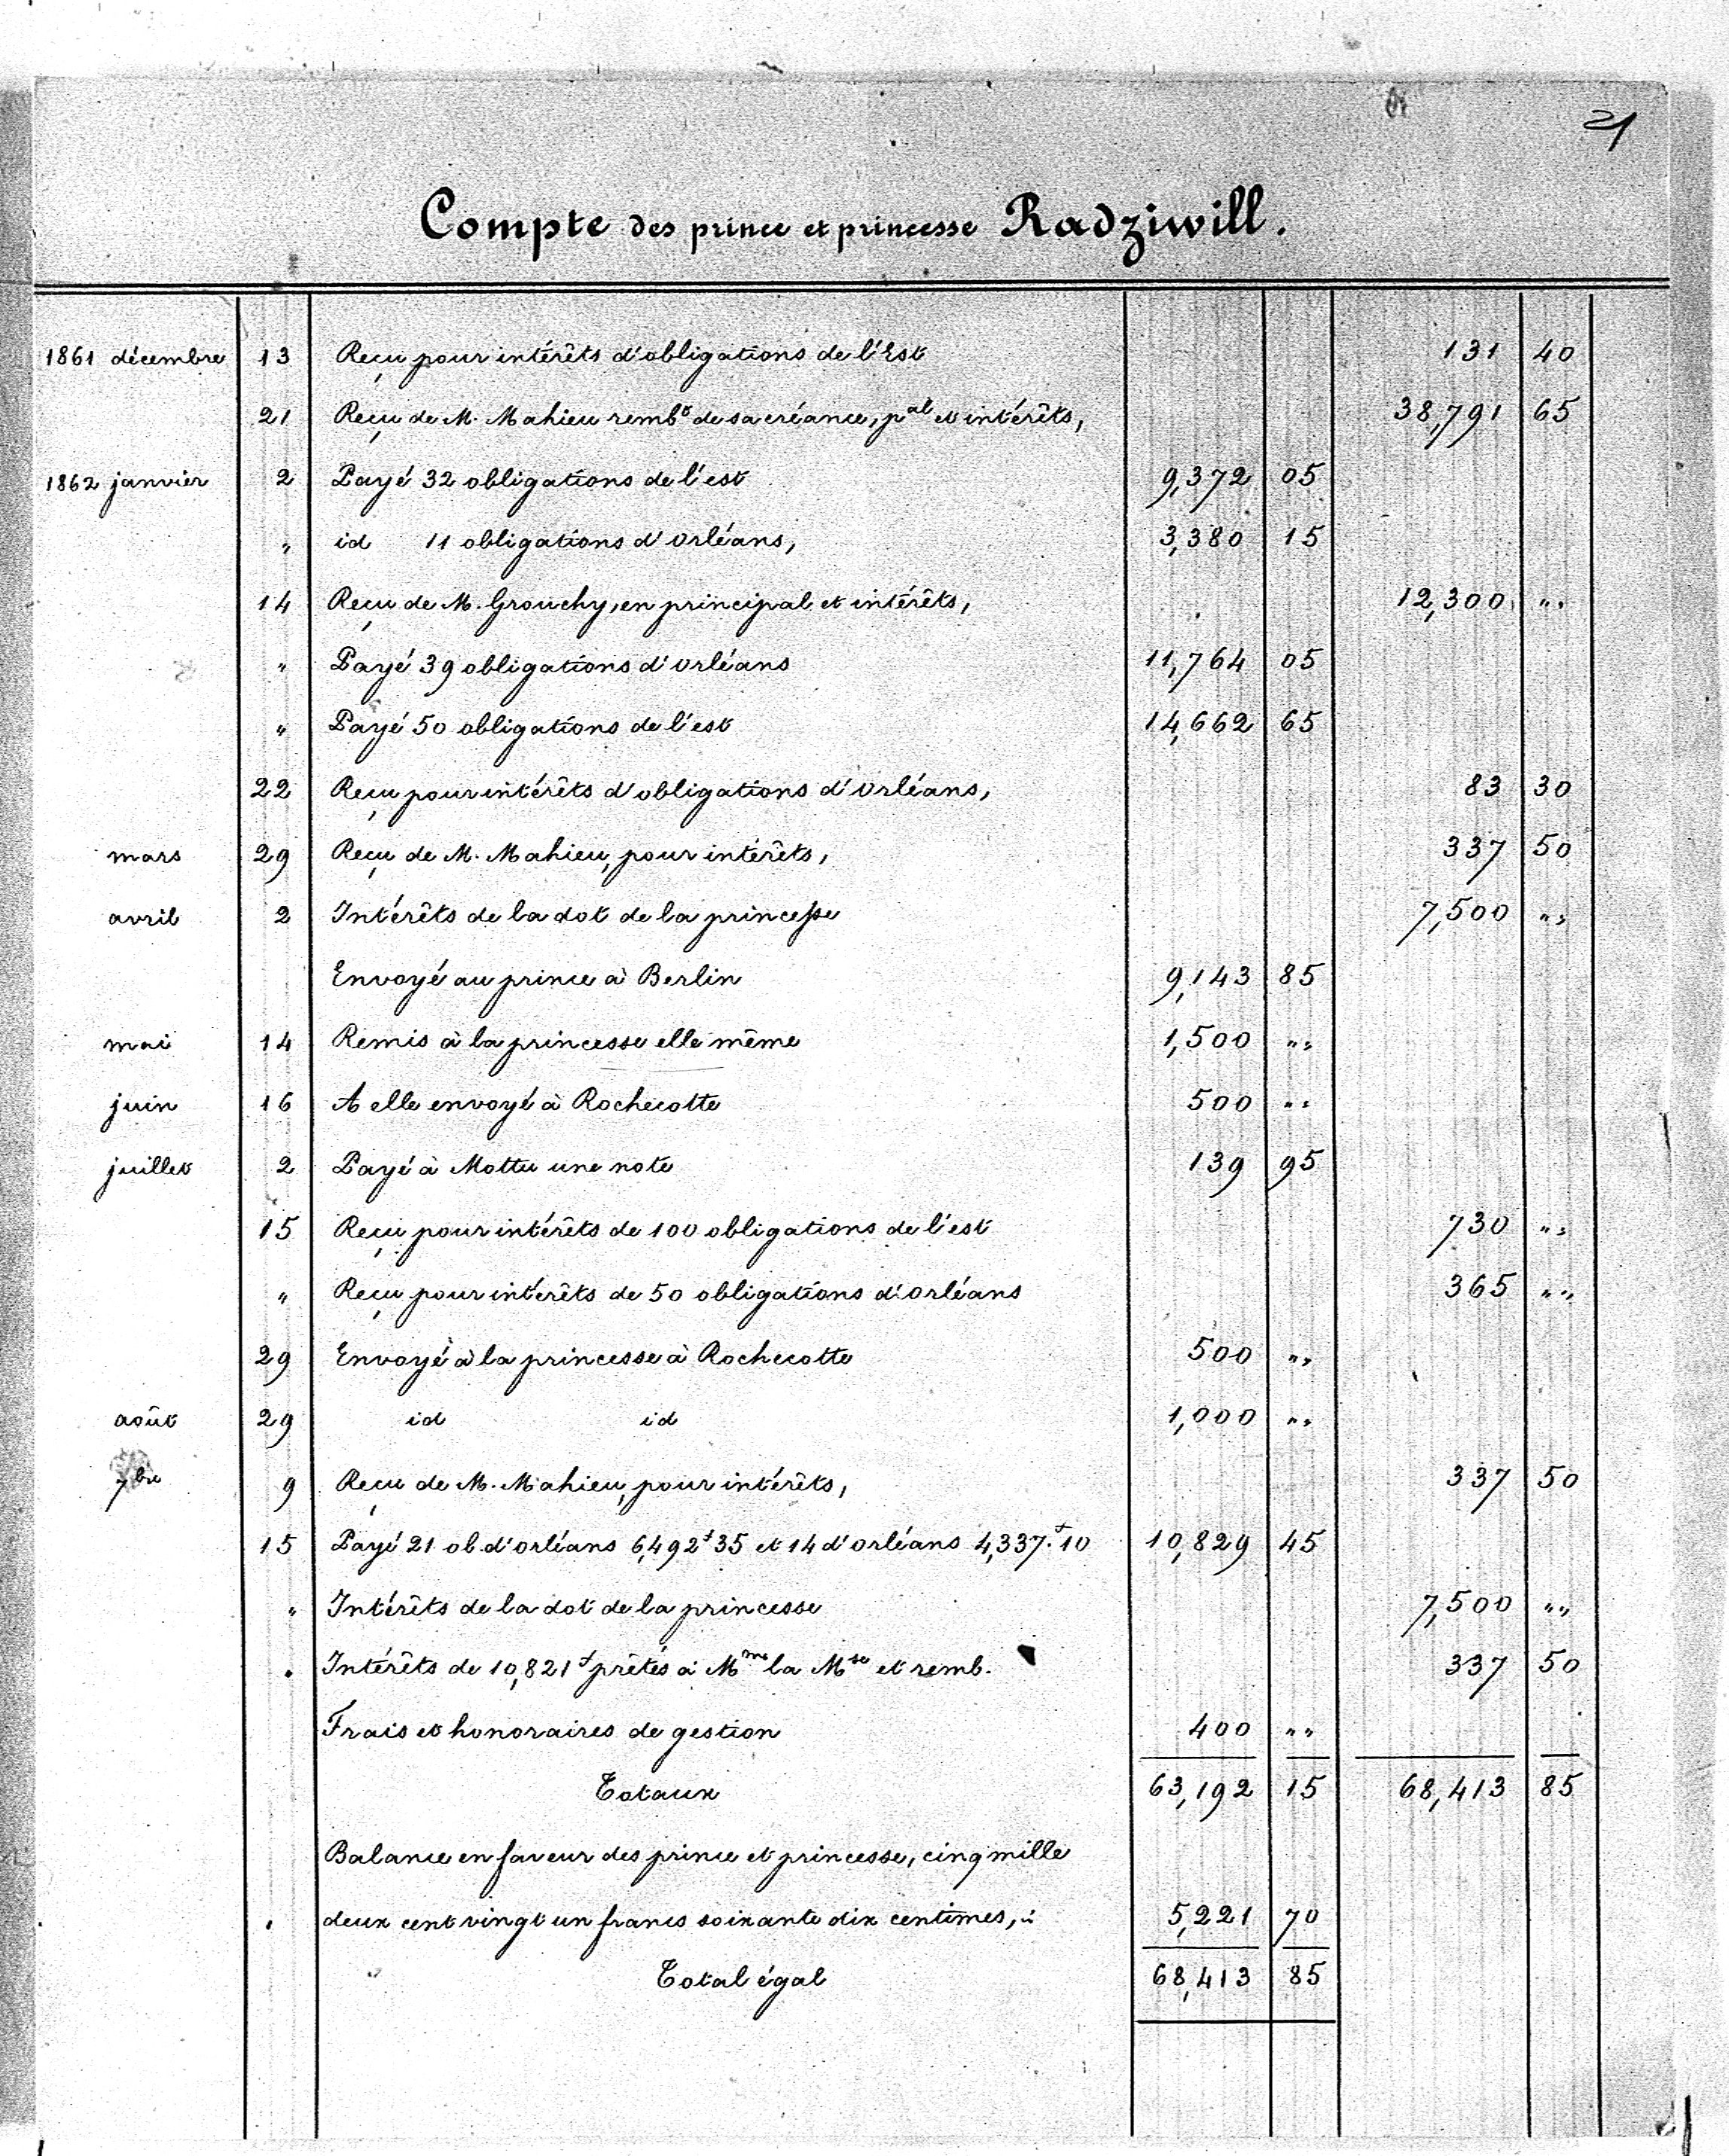 21
Compte des prince et princesse Radziwill.
1861 décembre 13 Reçu pour intérêts d'obligations de l'Est 131 40
21 Reçu de M. Mahieu remb^t de sa créance, p^al et intérêts, 38,791 65
1862 janvier 2 Payé 32 obligations de l'est 9,372 05
" id 11 obligations d'orléans, 3,380 15
14 Reçu de M. Grouchy, en principal et intérêts, 12,300 ""
" Payé 39 obligations d'orléans 11,764 05
" Payé 50 obligations de l'est 14,662 65
22 Reçu pour intérêts d'obligations d'orléans, 83 30
mars 29 Reçu de M. Mahieu, pour intérêts, 337 50
avril 2 Intérêts de la dot de la princesse 7,500 ""
Envoyé au prince à Berlin 9,143 85
mai 14 Remis à la princesse elle même 1,500 ""
juin 16 A elle envoyé à Rochecotte 500 ""
juillet 2 Payé à Mottu une note 139 95
15 Reçu pour intérêts de 100 obligations de l'est 730 ""
" Reçu pour intérêts de 50 obligations d'orléans 365 ""
29 Envoyé à la princesse à Rochecotte 500 ""
août 29 id id 1,000 ""
7bre 9 Reçu de M. Mahieu, pour intérêts, 337 50
15 Payé 21 ob. d'orléans 6,492^f 35 et 14 d'orléans 4,337^f 10 10,829 45
" Intérêts de la dot de la princesse 7,500 ""
" Intérêts de 10,821^f prêtés à M^me la M^se et remb. 337 50
Frais et honoraires de gestion 400 ""
Totaux 63,192 15 68,413 85
Balance en faveur des prince et princesse, cinq mille
deux cent vingt un francs soixante dix centimes, ci 5,221 70
Total égal 68,413 85